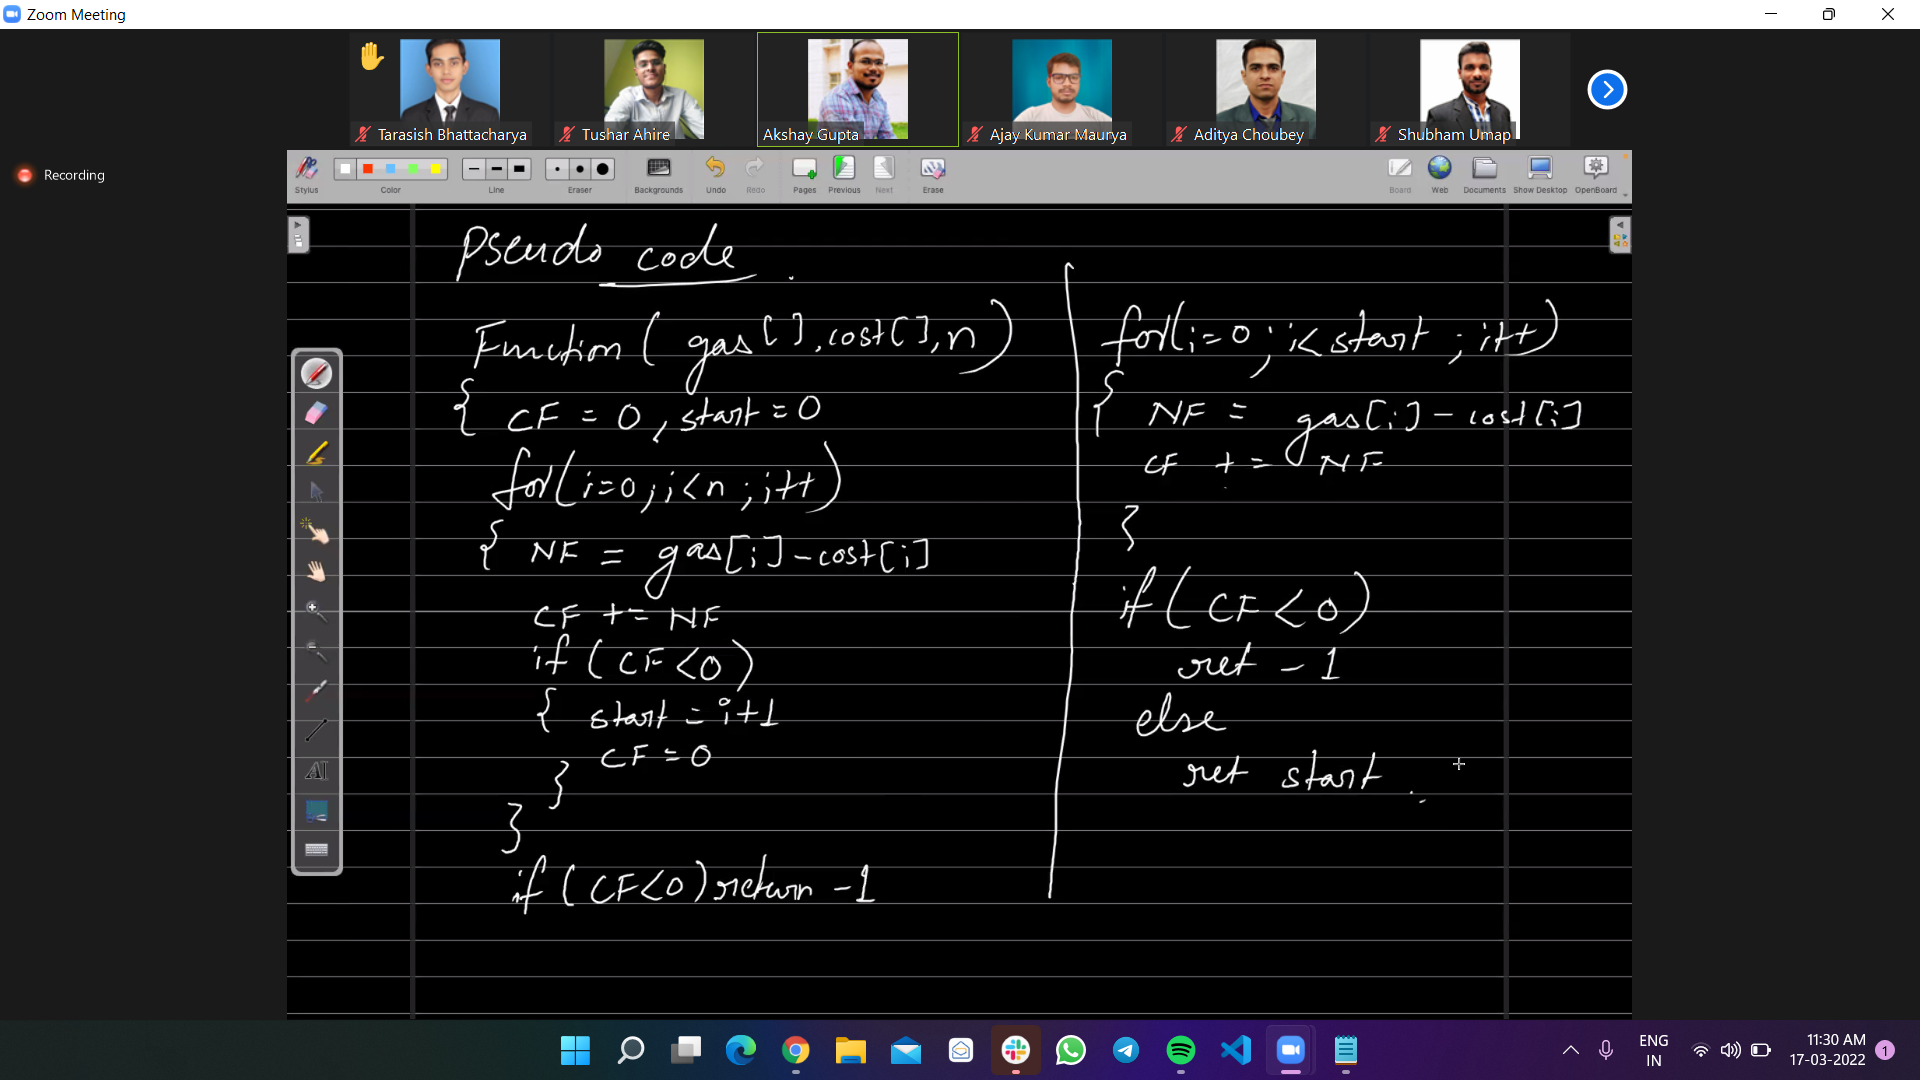 Zoom Meeting
Tarasish Bhattacharya
Tushar Ahire
Akshay Gupta
Ajay Kumar Maurya
Aditya Choubey
Shubham Umap
Recording
Stylus
Color
Line
Eraser
Backgrounds
Undo
Redo
Pages
Previous
Next
Erase
Board
Web
Documents
Show Desktop
OpenBoard
Pseudo code
Function ( gas[], cost[], n)
{ CF = 0, start = 0
for(i=0; i<n ; i++)
{ NF = gas[i] - cost[i]
CF += NF
if (CF<0)
{ start = i+1
CF = 0
}
}
if (CF<0) return -1
for(i=0; i< start ; i++)
{ NF = gas[i] - cost[i]
CF += NF
}
if ( CF < 0)
ret - 1
else
ret start
AI
ENG
IN
11:30 AM
17-03-2022
1